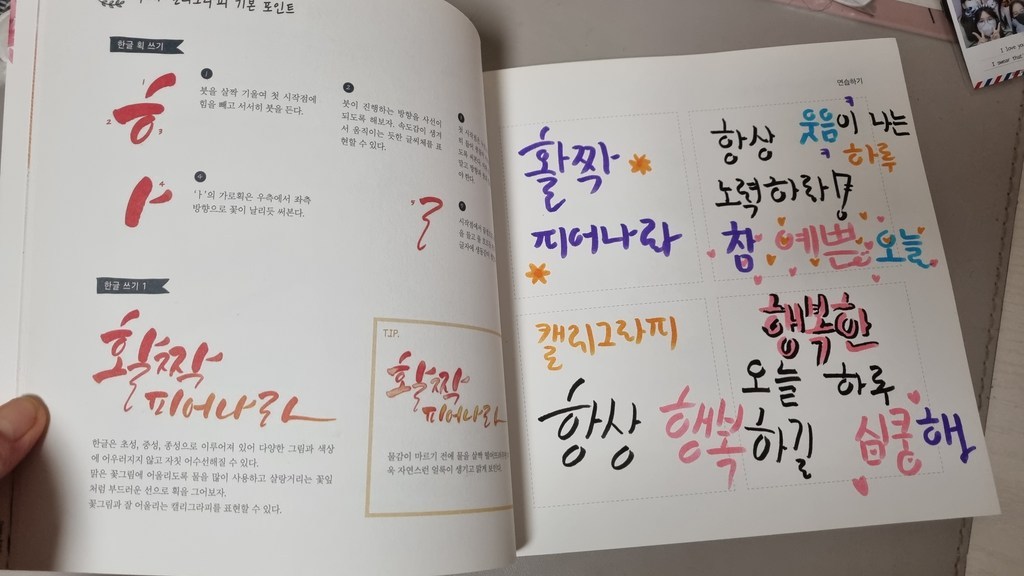 캘리그라피 기본 포인트
한글 획 쓰기
1
붓을 살짝 기울여 첫 시작점에
힘을 빼고 서서히 붓을 든다.
2
붓이 진행하는 방향을 사선이
되도록 해보자. 속도감이 생겨
서 움직이는 듯한 글씨체를 표
현할 수 있다.
4
'ㅏ'의 가로획은 우측에서 좌측
방향으로 꽃이 날리듯 써본다.
한글 쓰기 1
활짝
피어나라
한글은 초성, 중성, 종성으로 이루어져 있어 다양한 그림과 색상
에 어우러지지 않고 자칫 어수선해질 수 있다.
맑은 꽃그림에 어울리도록 물을 많이 사용하고 살랑거리는 꽃잎
처럼 부드러운 선으로 획을 그어보자.
꽃그림과 잘 어울리는 캘리그라피를 표현할 수 있다.
TIP.
활짝
피어나라
물감이 마르기 전에 물을 살짝
욱 자연스런 얼룩이 생기고 맑게 보인다.
연습하기
활짝
피어나라
항상 웃음이 나는
하루
노력하라!
참 예쁜 오늘
캘리그라피
항상 행복하길
행복한
오늘 하루
심쿵해
I love you
I swear that